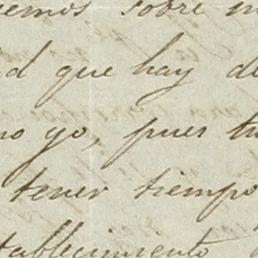 emos sobre
d que hay d
no yo, pues tu
tener tiempo
tablecimiento